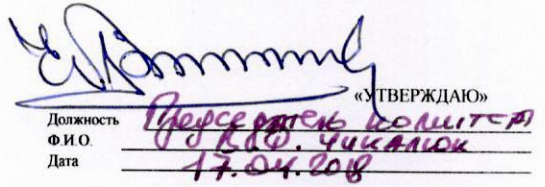 «УТВЕРЖДАЮ»
Должность Председатель комитета
Ф.И.О. В.Ф. Чукалюк
Дата 17.04.2018